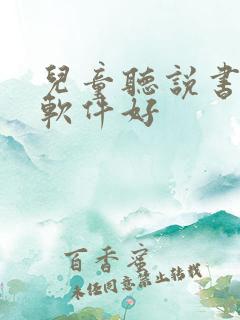 兒童聽說書
軟件好
百香蜜
未經同意禁止轉載